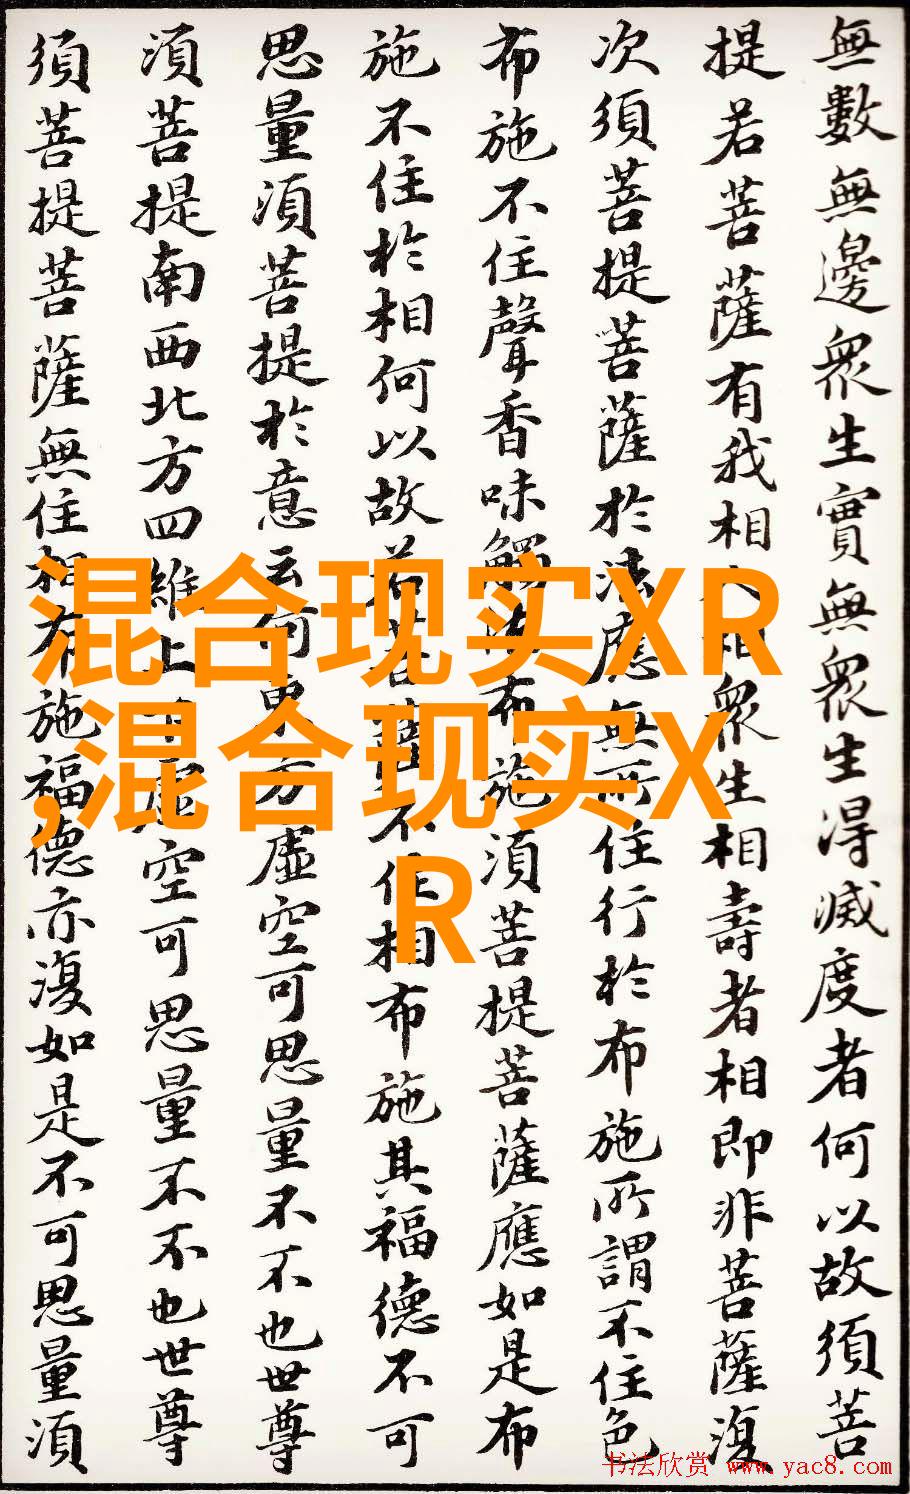 無數無邊衆生實無衆生得滅度者何以故須菩
提若菩薩有我相人相衆生相壽者相即非菩薩復
次須菩提菩薩於法應無所住行於布施所謂不住色
布施不住聲香味觸法布施須菩提菩薩應如是布
施不住於相何以故若菩薩不住相布施其福德不可
思量須菩提於意云何東方虛空可思量不不也世尊
須菩提南西北方四維上下虛空可思量不不也世尊
須菩提菩薩無住相布施福德亦復如是不可思量須
混合现实XR
,混合现实X
R
书法欣赏 www.yac8.com